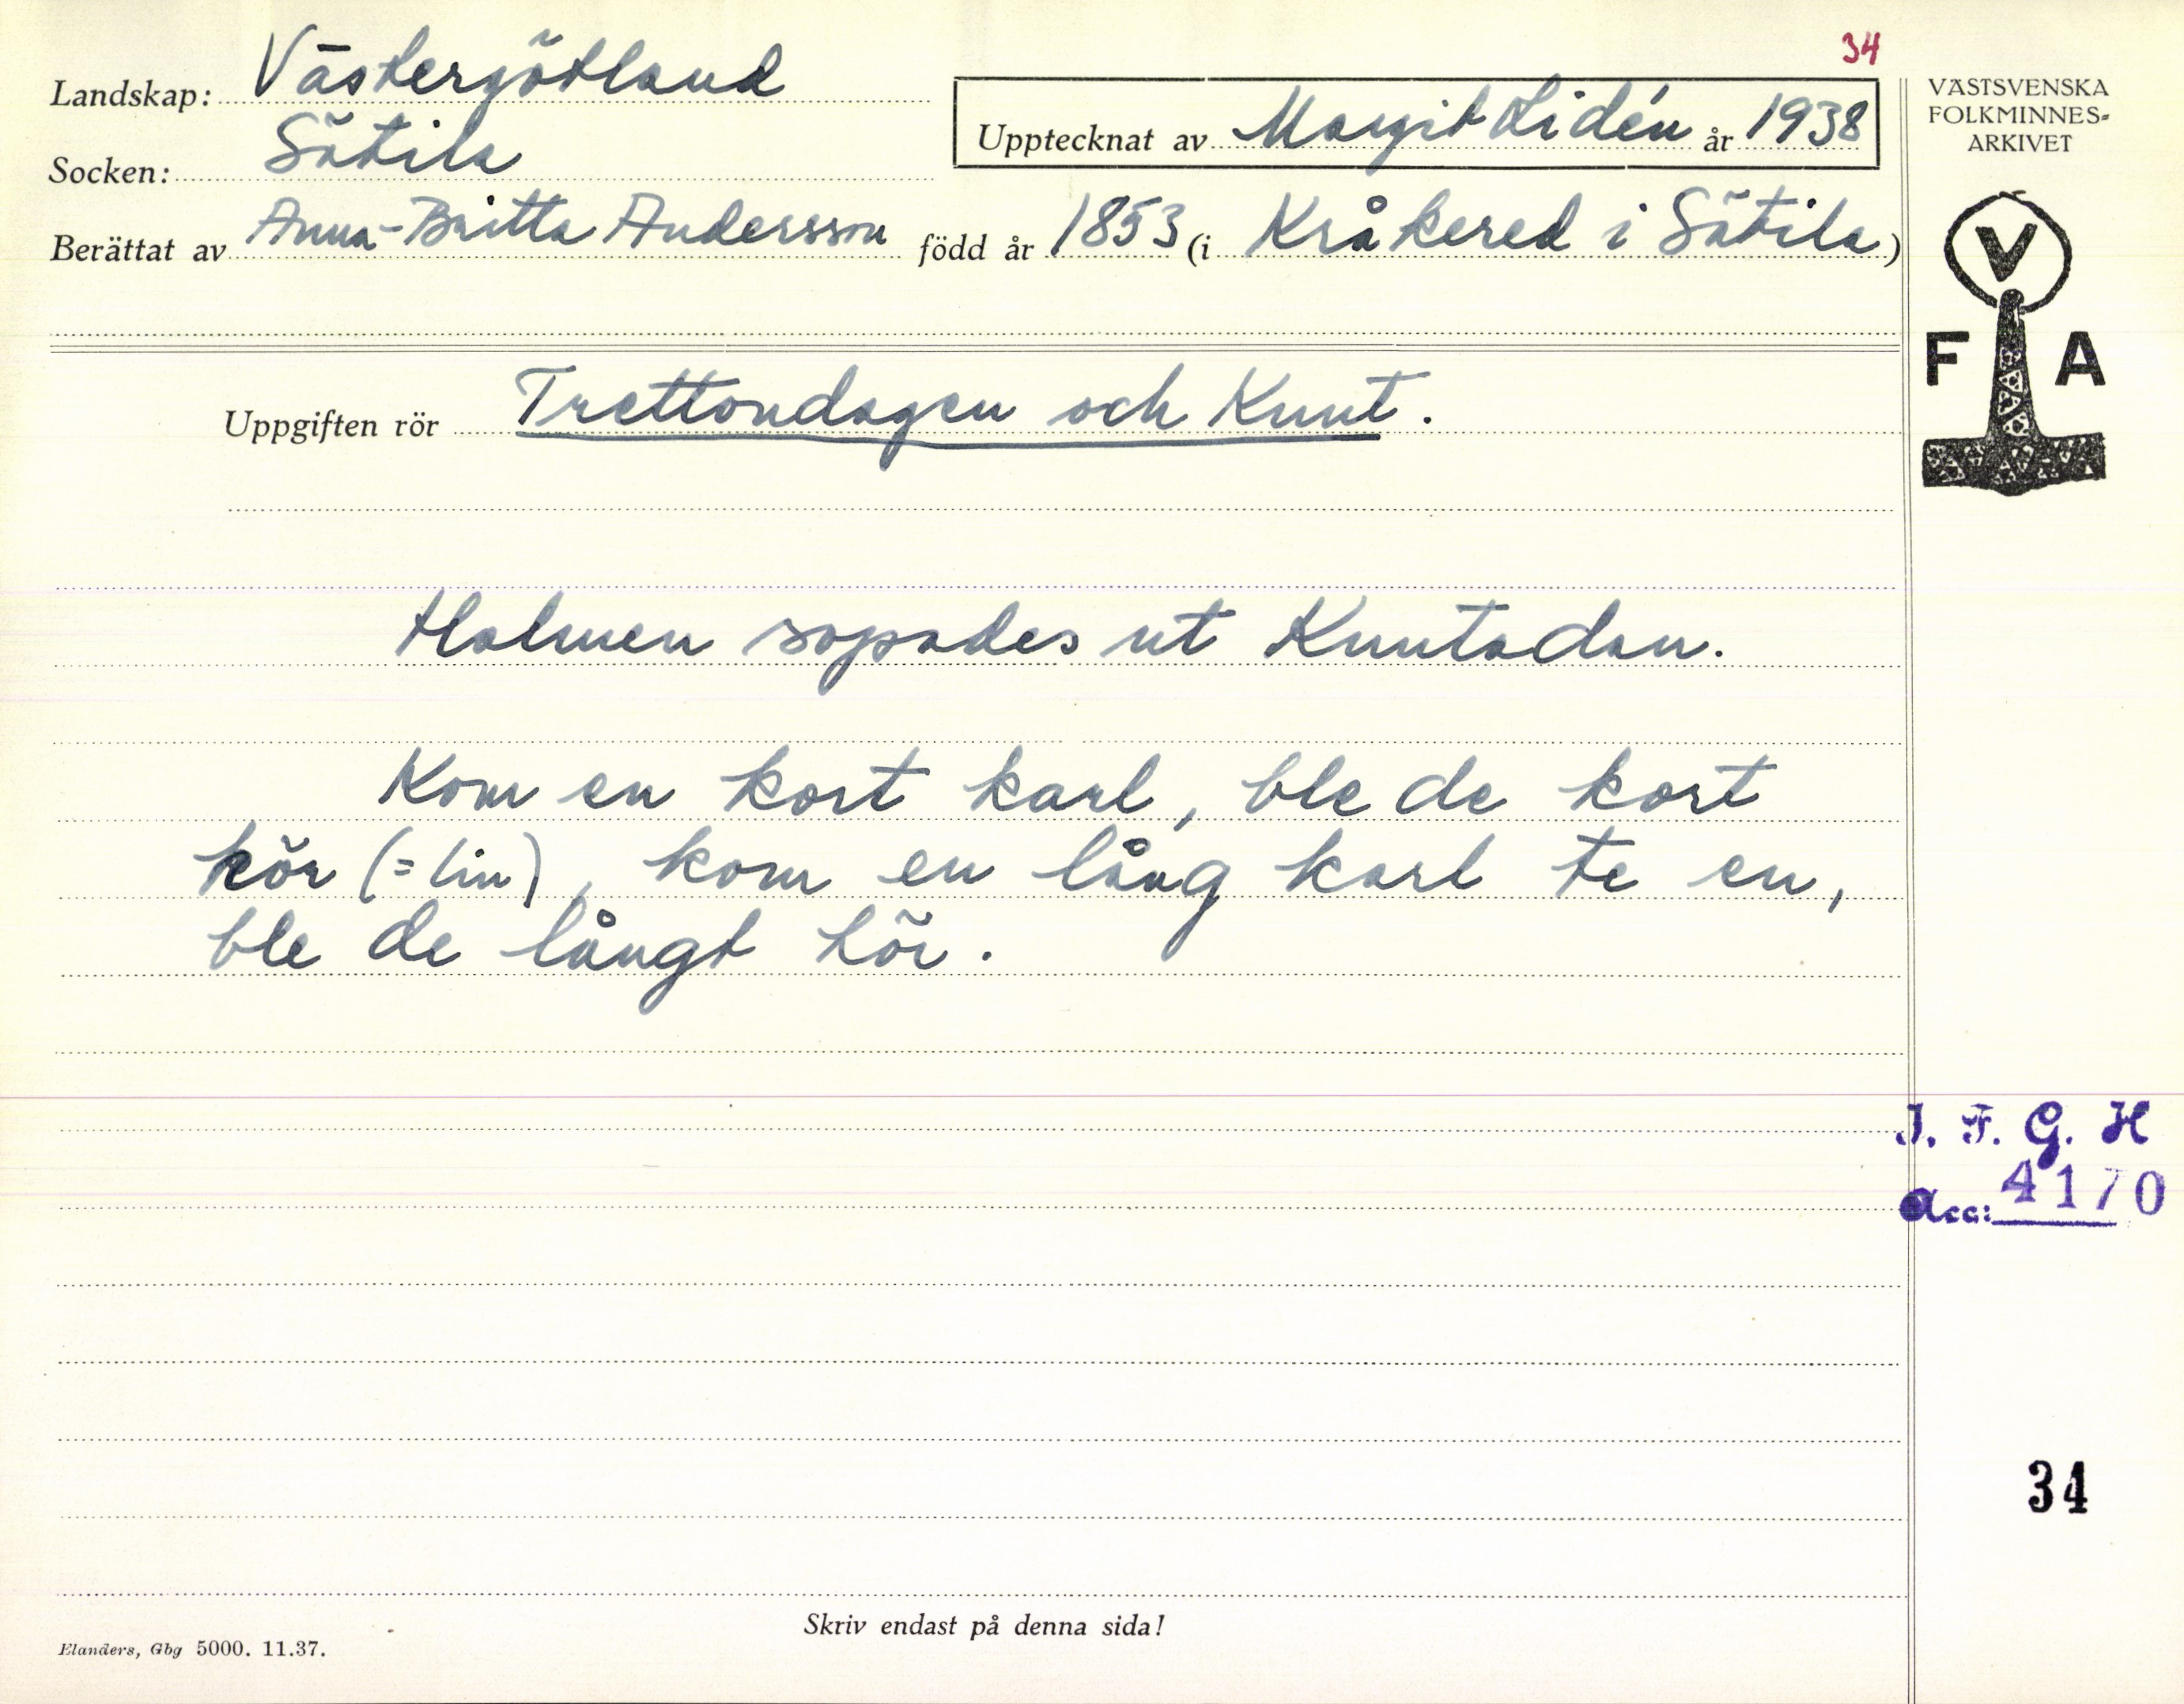 34
Landskap: Västergötland
Upptecknat av Margit Lidén år 1938
Socken: Sätila
Berättat av Anna-Britta Andersson född år 1853 (i Kråkered i Sätila)
VÄSTSVENSKA
FOLKMINNES-
ARKIVET
V
F A
Uppgiften rör Trettondagen och Knut.
Halmen sopades ut Knutadan.
Kom en kort karl, ble de kort
hör (= lin), kom en lång karl te en,
ble de långt hör.
I. F. G. H
Acc: 4170
34
Skriv endast på denna sida!
Elanders, Gbg 5000. 11.37.